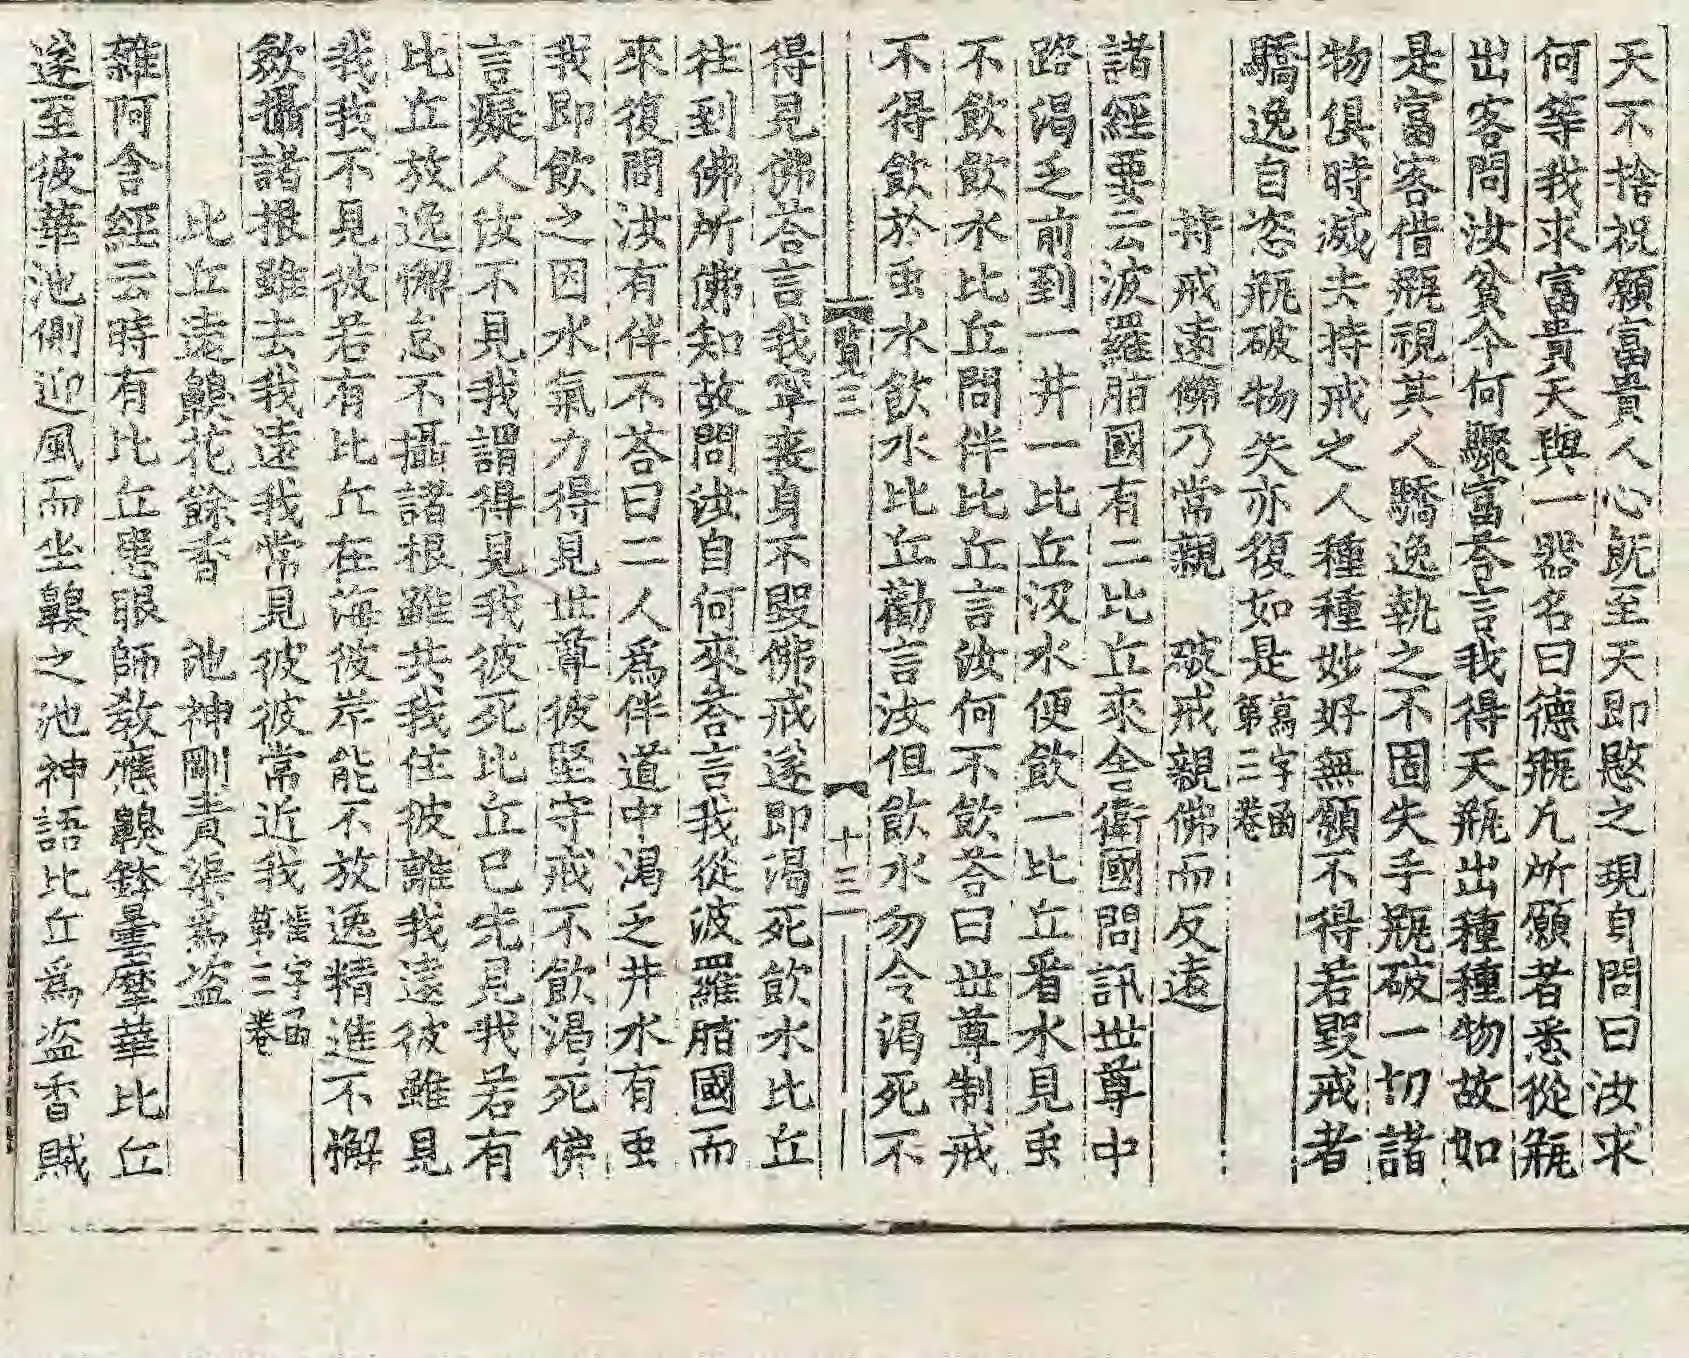 天不捨祝願富貴人心旣至天即愍之現身問曰汝求
何等我求富貴天與一器名曰德甁凡所願者悉從甁
出客問汝貧今何驟富荅言我得天甁出種種物故如
是富客借甁視其人驕逸執之不固失手甁破一切諸
物俱時滅失持戒之人種種妙好無願不得若毁戒者
驕逸自恣甁破物失亦復如是寫字函第三卷
持戒遠佛乃常親 破戒親佛而反遠
諸經要云波羅脂國有二比丘來舍衛國問訊世尊中
路渴乏前到一井一比丘汲水便飮一比丘看水見䖝
不飮飮水比丘問伴比丘言汝何不飮荅曰世尊制戒
不得飮於䖝水飮水比丘勸言汝但飮水勿令渴死不
賢三 十三
得見佛荅言我寧喪身不毁佛戒遂即渴死飮水比丘
往到佛所佛知故問汝自何來荅言我從波羅脂國而
來復問汝有伴不荅曰二人爲伴道中渴乏井水有䖝
我即飮之因水氣力得見世尊彼堅守戒不飮渴死佛
言癡人汝不見我謂得見我彼死比丘已先見我若有
比丘放逸懈怠不攝諸根雖共我住彼離我遠彼雖見
我我不見彼若有比丘在海彼岸能不放逸精進不懈
歛攝諸根雖去我遠我常見彼彼常近我 字函第三卷
比丘遠齅花餘香 池神剛責渠爲盜
雜阿含經云時有比丘患眼師敎應齅鉢曇摩華比丘
遂至彼華池側迎風而坐齅之池神語比丘爲盜香賊